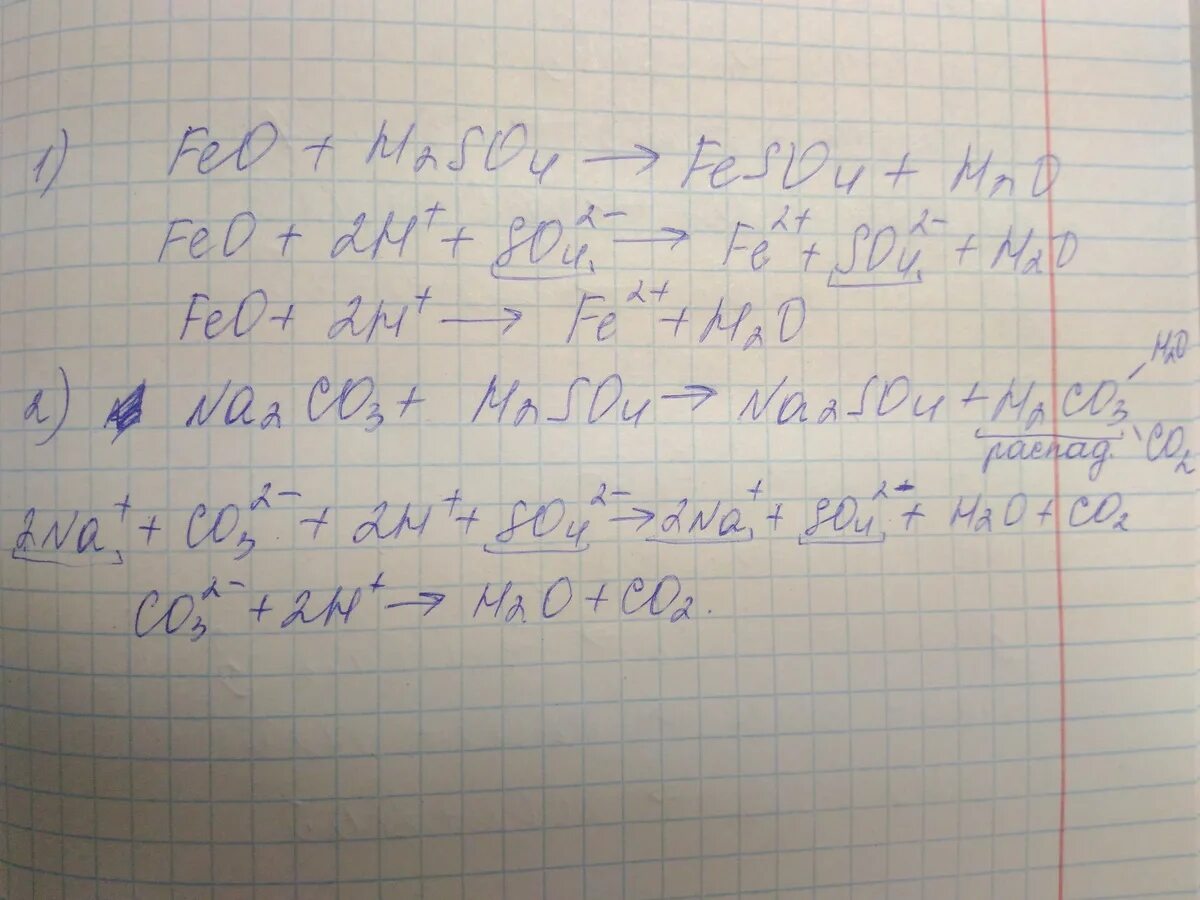 1) FeO + H₂SO₄ → FeSO₄ + H₂O
FeO + 2H⁺ + SO₄²⁻ → Fe²⁺ + SO₄²⁻ + H₂O
FeO + 2H⁺ → Fe²⁺ + H₂O
2) Na₂CO₃ + H₂SO₄ → Na₂SO₄ + H₂CO₃
H₂O
распад.
CO₂
2Na⁺ + CO₃²⁻ + 2H⁺ + SO₄²⁻ → 2Na⁺ + SO₄²⁻ + H₂O + CO₂
CO₃²⁻ + 2H⁺ → H₂O + CO₂.